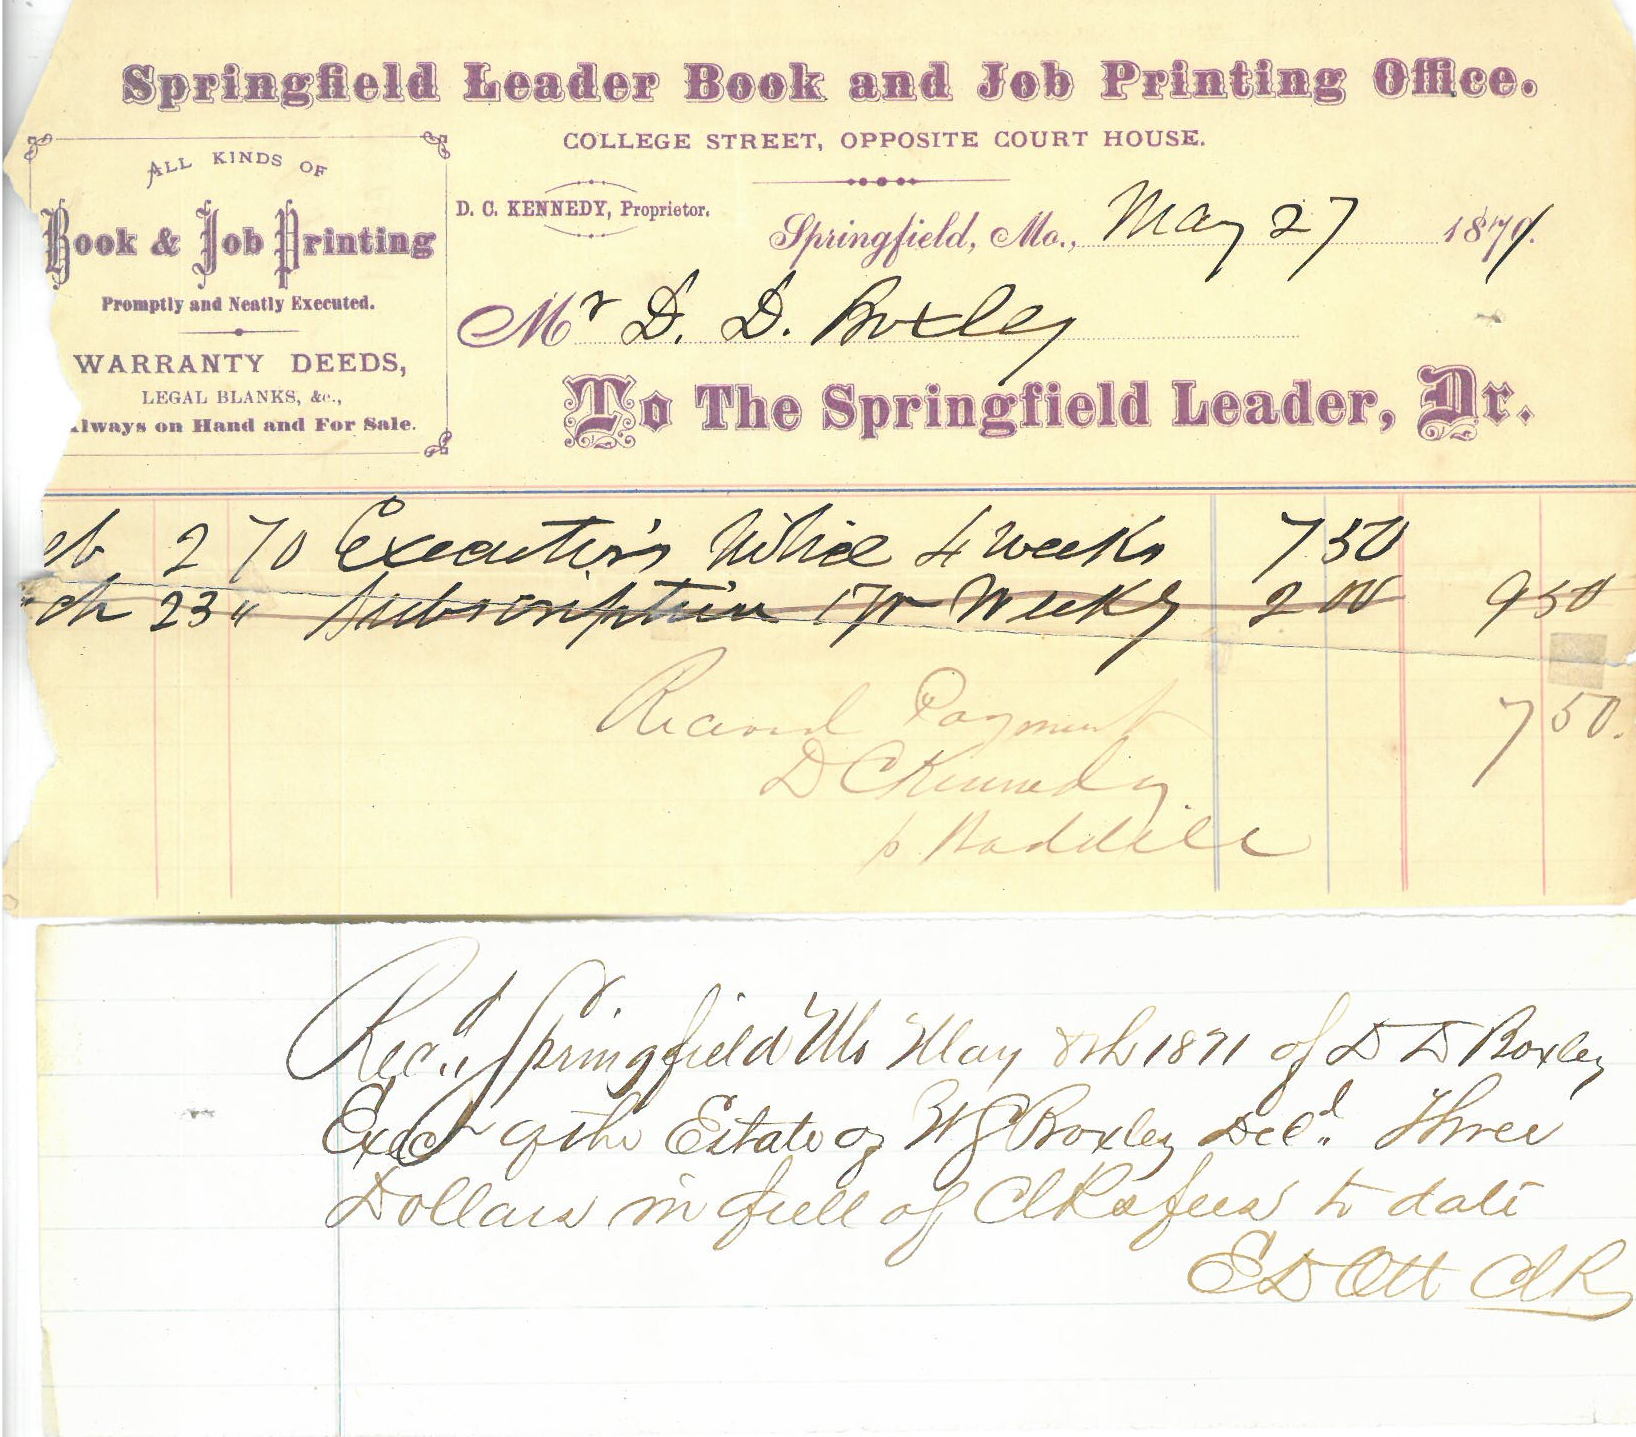 Springfield Leader Book and Job Printing Office.
COLLEGE STREET, OPPOSITE COURT HOUSE.
ALL KINDS OF
Book & Job Printing
Promptly and Neatly Executed.
WARRANTY DEEDS,
LEGAL BLANKS, &c.,
Always on Hand and For Sale.
D. C. KENNEDY, Proprietor.
Springfield, Mo., May 27 1871.
Mr D. D. Boxley
To The Springfield Leader, Dr.
eb 2 70 Executor's Notice 4 weeks 7 50
ch 23 " Subscription 1 yr Weekly 2 00 9 50
7 50.
Received Payment
D C Kennedy
p
Rec'd Springfield Mo May 8th 1871 of D D Boxley
Exect of the Estate of W Boxley Decd. Three
Dollars in full of ClKs fees to date
E D Ott ClK